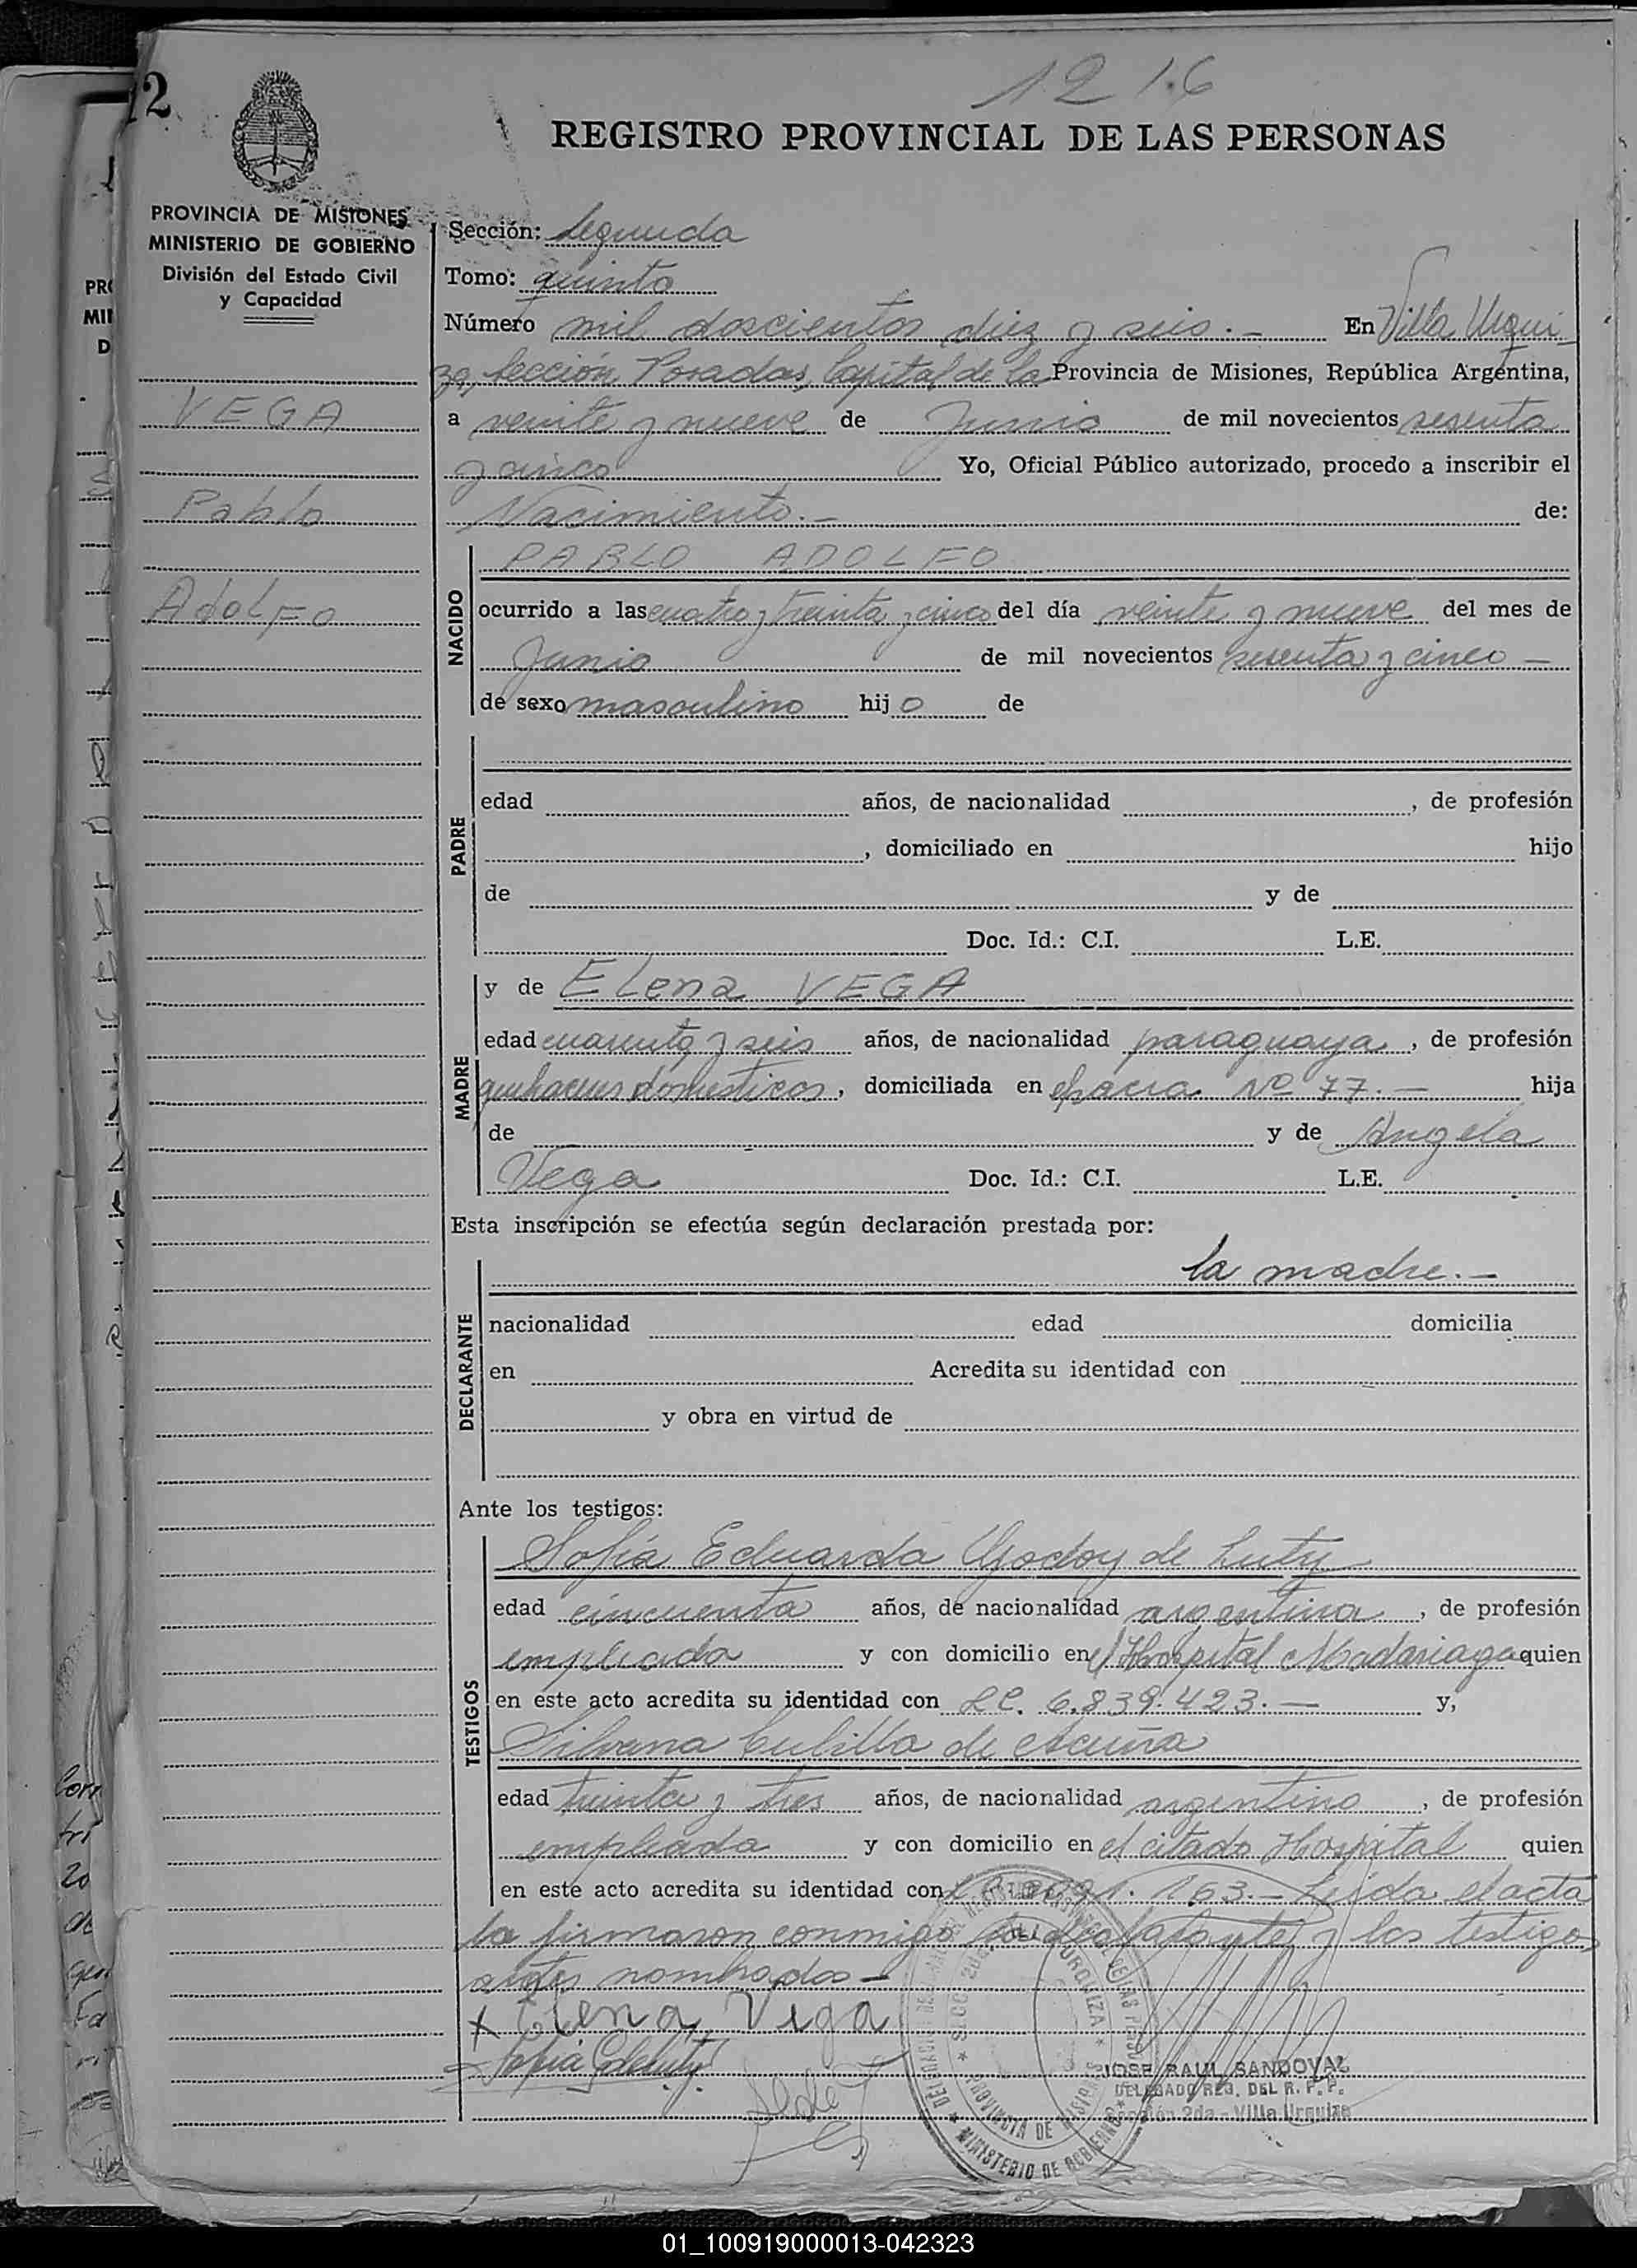 2
1216
REGISTRO PROVINCIAL DE LAS PERSONAS
PROVINCIA DE MISIONES
MINISTERIO DE GOBIERNO
División del Estado Civil
y Capacidad
VEGA
Pablo
Adolfo
Sección: Segunda
Tomo: quinto
Número mil doscientos diez y seis.- En Villa Urqui-
za, Sección Posadas, Capital de la Provincia de Misiones, República Argentina,
a veinte y nueve de Junio de mil novecientos sesenta
y cinco Yo, Oficial Público autorizado, procedo a inscribir el
Nacimiento.- de:
NACIDO
PABLO ADOLFO
ocurrido a las cuatro y treinta y cinco del día veinte y nueve del mes de
Junio de mil novecientos sesenta y cinco -
de sexo masculino hijo de
PADRE
edad años, de nacionalidad , de profesión
, domiciliado en hijo
de y de
Doc. Id.: C.I. L.E.
MADRE
y de Elena VEGA
edad cuarenta y seis años, de nacionalidad paraguaya, de profesión
quehaceres domesticos, domiciliada en chacra Nº 77.- hija
de y de Angela
Vega Doc. Id.: C.I. L.E.
Esta inscripción se efectúa según declaración prestada por:
DECLARANTE
la madre.-
nacionalidad edad domicilia
en Acredita su identidad con
y obra en virtud de
Ante los testigos:
TESTIGOS
Sofía Eduarda Godoy de Luty
edad cincuenta años, de nacionalidad argentina, de profesión
empleada y con domicilio en el Hospital Madariaga quien
en este acto acredita su identidad con L.C. 6.839.423.- y,
Silvana Cubilla de Acuña
edad treinta y tres años, de nacionalidad argentino, de profesión
empleada y con domicilio en el citado Hospital quien
en este acto acredita su identidad con 163.- Leida el acta
la firmaron conmigo y los testigos
antes nombrados -
x Elena Vega
JOSE RAUL SANDOVAL
DELEGADO REG. DEL R. P. P.
Sección 2da - Villa Urquiza
PROVINCIA DE MISIONES
MINISTERIO DE GOBIERNO
01_100919000013-042323